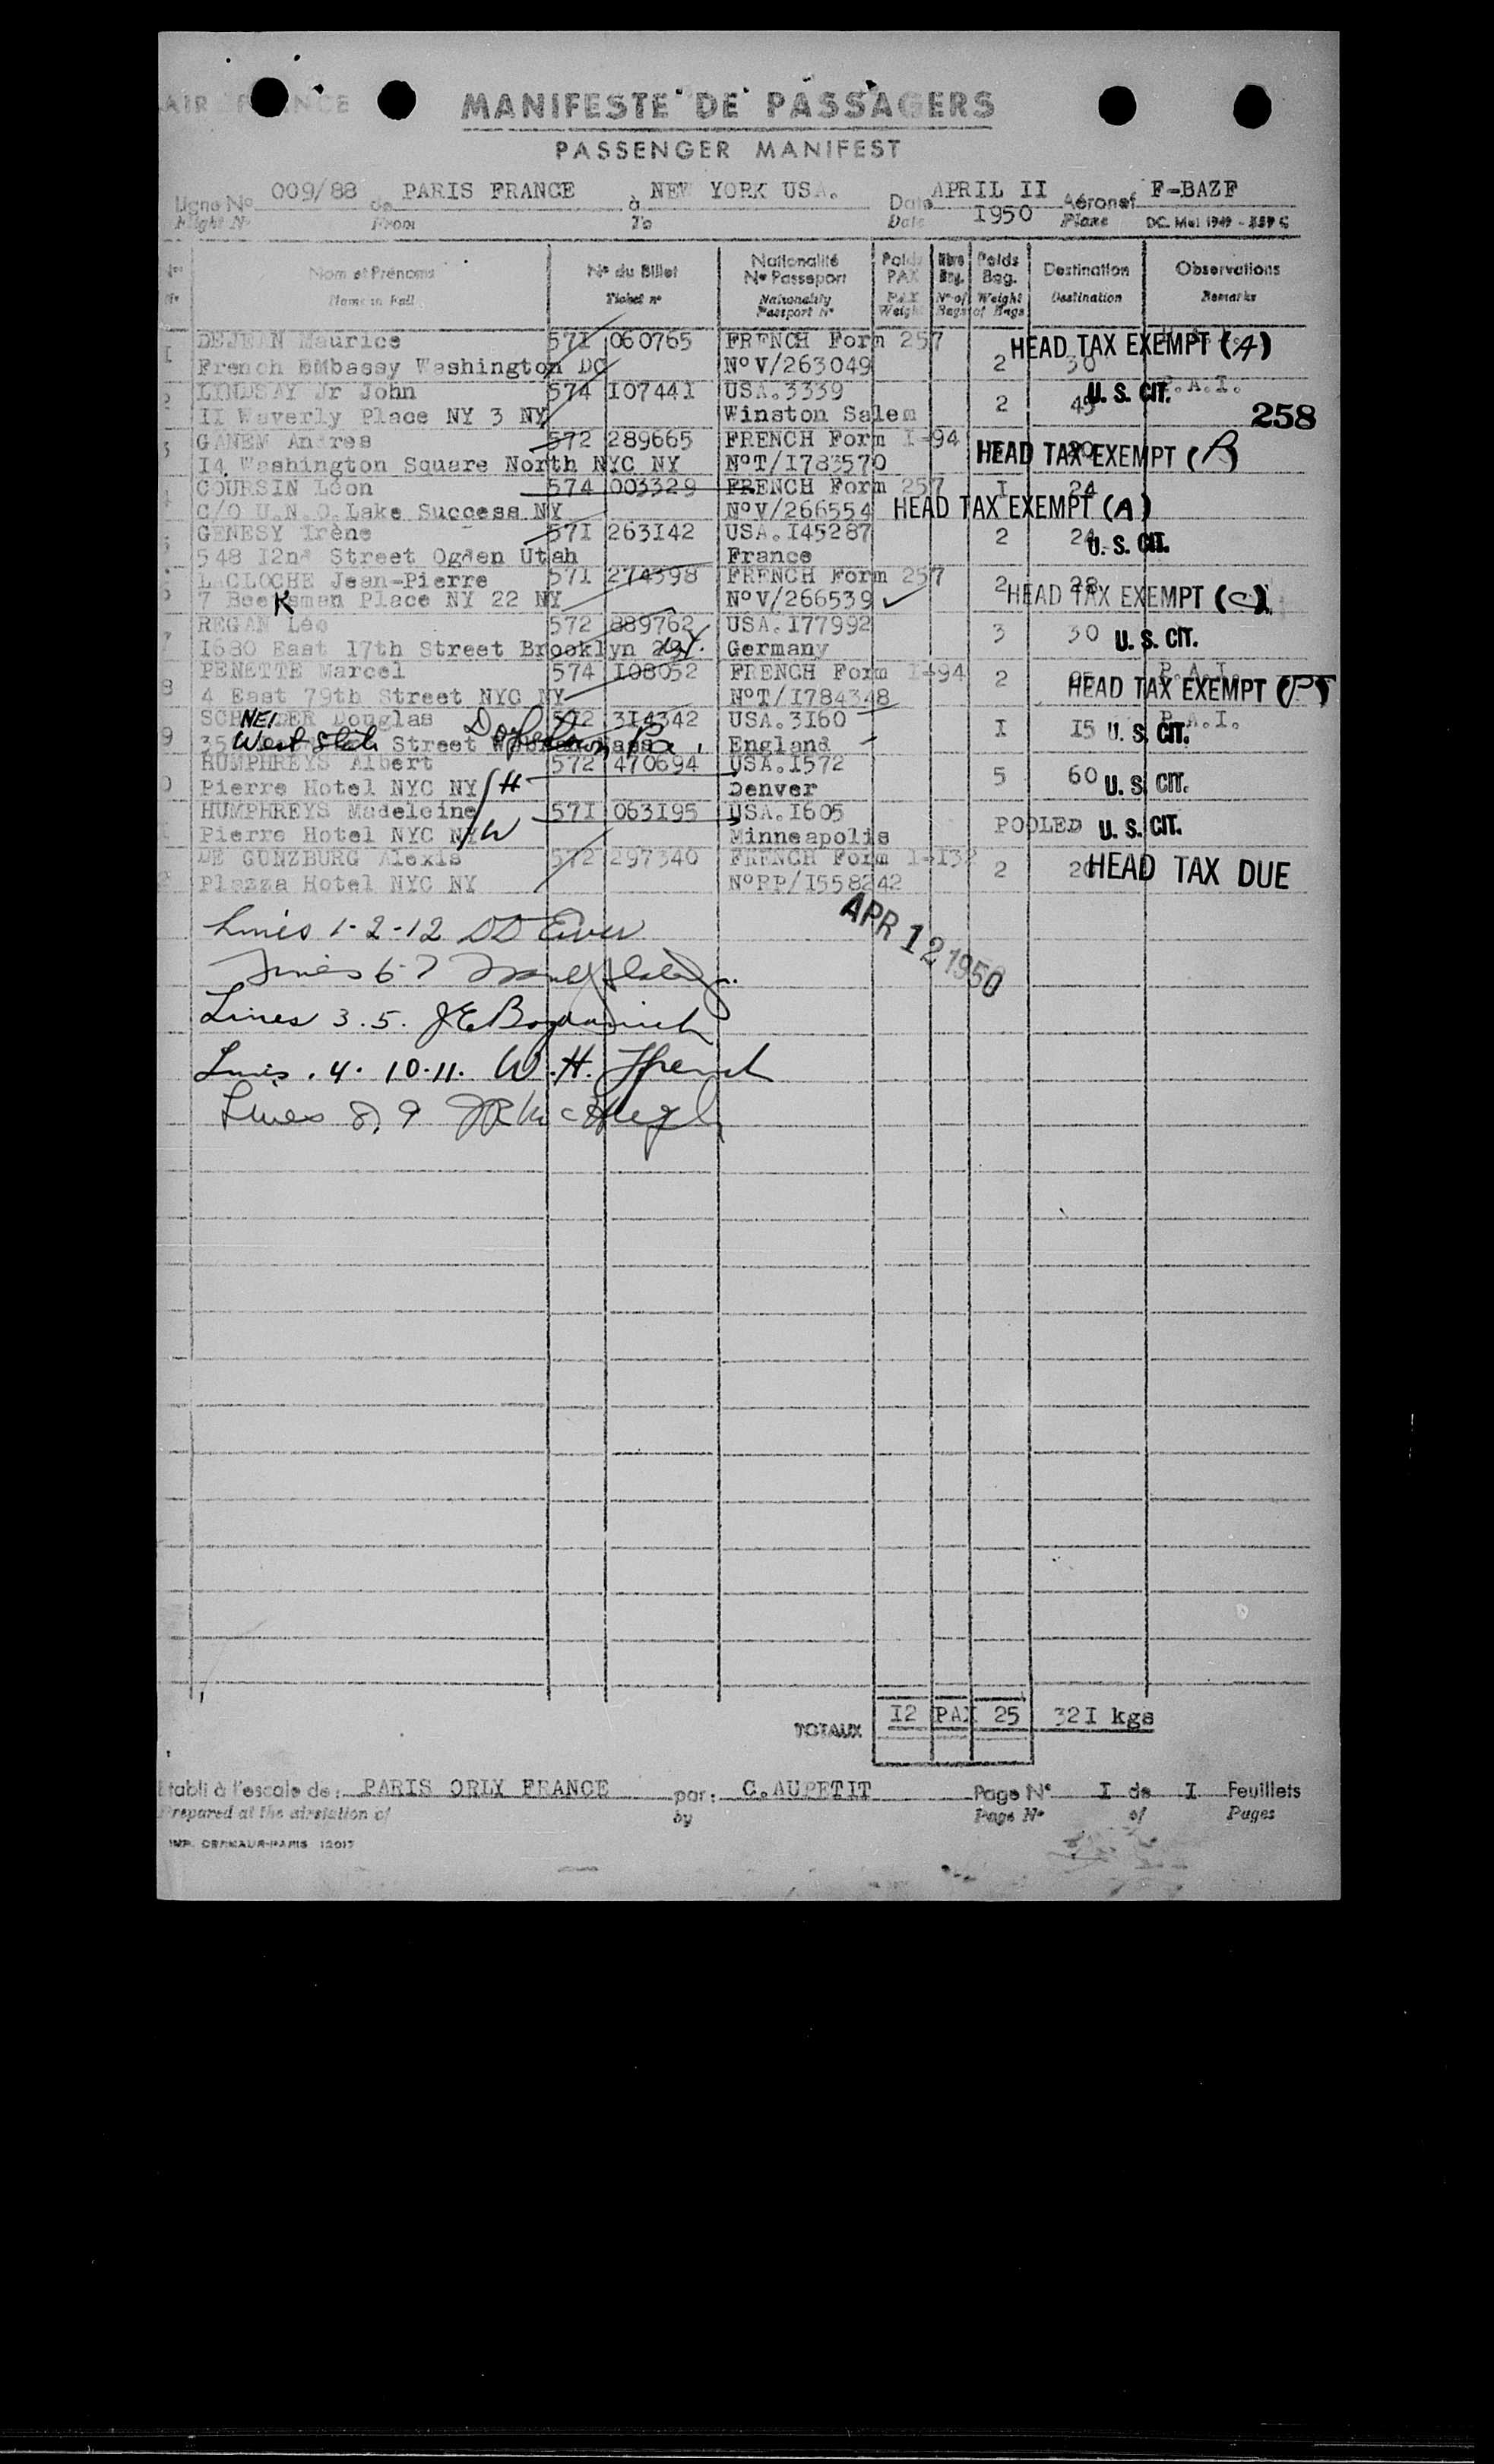 AIR FRANCE
MANIFESTE DE PASSAGERS
PASSENGER MANIFEST
Ligne No 009/88 de PARIS FRANCE à NEW YORK USA. Date APRIL II I950 Aéronef F-BAZF
Flight No From To Date Plane DC. Mai 1949
Nos Nom et Prénoms No du Billet Nationalité No Passeport Poids PAX Nbre Bag. Poids Bag. Destination Observations
No Name in Full Ticket no Nationality Passport No PAX Weight No of Bags Weight of Bags Destination Remarks
I DEJEAN Maurice 57I 060765 FRENCH Form 257 HEAD TAX EXEMPT (A)
French EMbassy Washington DC NoV/263049 2 30
2 LINDSAY Jr John 574 I0744I USA.3339 2 45 U. S. CIT. P.A.I.
II Waverly Place NY 3 NY Winston Salem 258
3 GANEM Andres 572 289665 FRENCH Form I-94 HEAD TAX EXEMPT (B)
I4 Washington Square North NYC NY NoT/I783570
COURSIN Léon 574 003329 FRENCH Form 257 I 24
C/O U.N.O.Lake Success NY NoV/266554 HEAD TAX EXEMPT (A)
GENESY Irène 57I 263I42 USA.I45287 2 24 U. S. CIT.
548 I2nd Street Ogden Utah France
LACLOCHE Jean-Pierre 57I 274398 FRENCH Form 257 2 28
7 Beeksman Place NY 22 NY NoV/266539 HEAD TAX EXEMPT (C)
K
REGAN Léo 572 889762 USA.I77992 3 30 U. S. CIT.
I630 East I7th Street Brooklyn 29 N.Y. Germany
8 PENETTE Marcel 574 I08052 FRENCH Form I-94 2 P.A.I.
4 East 79th Street NYC NY NoT/I784348 HEAD TAX EXEMPT (P)
9 SCHNEIDER Douglas 572 3I4342 USA.3I60 I I5 U. S. CIT. P.A.I.
35 West State Street Doylestown, Pa. England
HUMPHREYS Albert 572 470694 USA.I572 5 60 U. S. CIT.
Pierre Hotel NYC NY /H Denver
HUMPHREYS Madeleine 57I 063I95 USA.I605 POOLED U. S. CIT.
Pierre Hotel NYC NY /W Minneapolis
DE GUNZBURG Alexis 572 297340 FRENCH Form I-I32 2 20 HEAD TAX DUE
Plazza Hotel NYC NY NoPP/I558242
APR 12 1950
Lines 1-2-12
Lines 6-7
Lines 3.5. J E Bogdanich
Lines . 4. 10.11. W. H. French
Lines 8, 9
TOTAUX I2 PAX 25 32I kgs
Etabli à l'escale de: PARIS ORLY FRANCE par: C.AUPETIT Page No I de I Feuillets
Prepared at the airstation of by Page No of Pages
IMP. CRENAUR-PARIS 12017